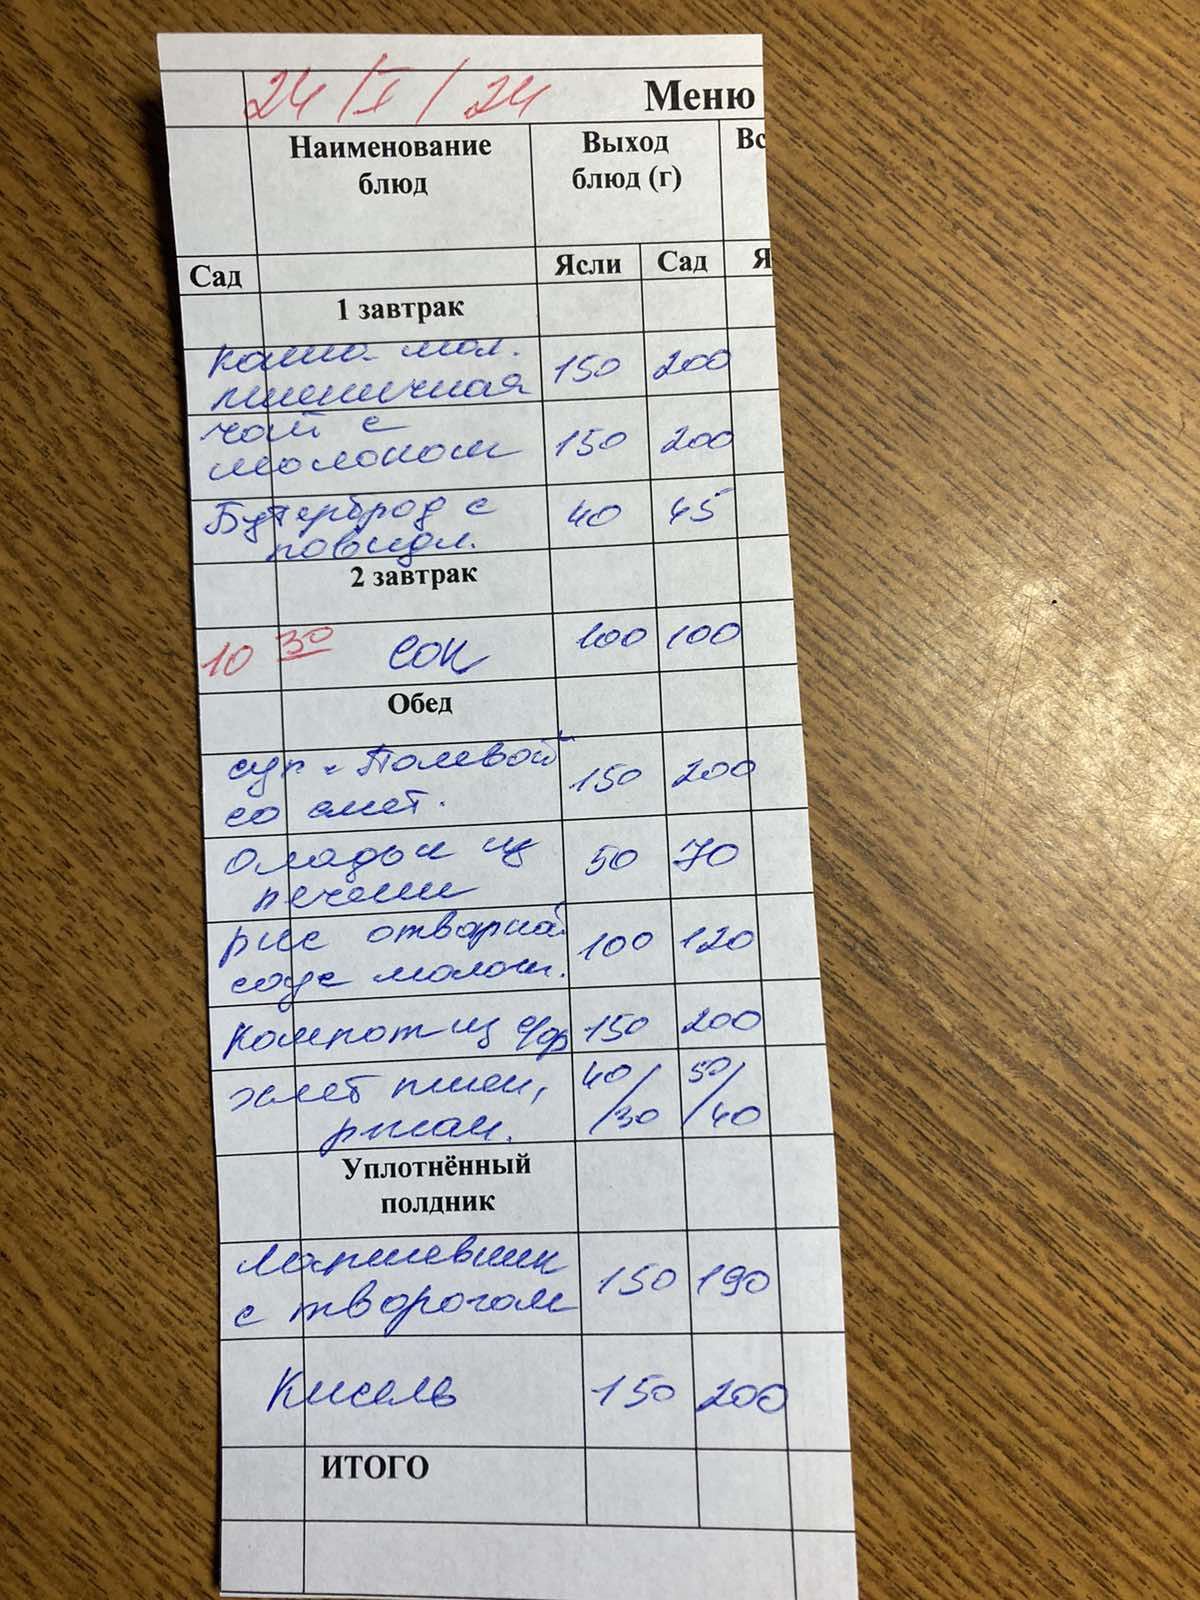 24/I/24 Меню
Наименование Выход Вс
блюд блюд (г)
Сад Ясли Сад Я
1 завтрак
каша мол. 150 200
пшеничная
чай с 150 200
молоком
Бутерброд с 40 45
повидл.
2 завтрак
10 30 сок 100 100
Обед
суп "Полевой" 150 200
со смет.
Оладьи из 50 70
печени
рис отварной 100 120
соус молоч.
Компот из с/ф 150 200
хлеб пшен, 40/30 50/40
ржан.
Уплотнённый
полдник
Лапшевник 150 190
с творогом
Кисель 150 200
ИТОГО